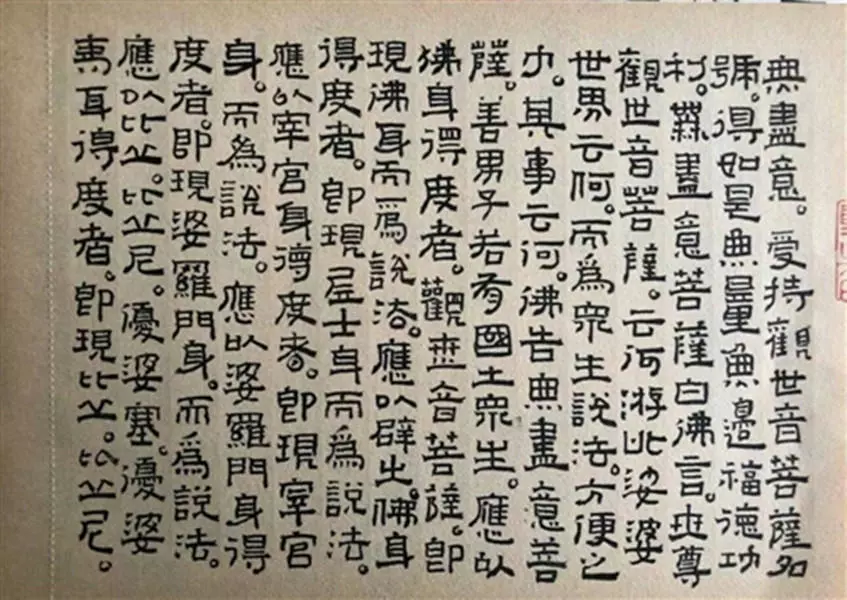 無盡意。受持觀世音菩薩名
號。得如是無量無邊福德功
利。無盡意菩薩白佛言。世尊
觀世音菩薩。云何游此娑婆
世界云何。而為眾生說法。方便之
力。其事云何。佛告無盡意菩
薩。善男子若有國土眾生。應以
佛身得度者。觀世音菩薩。即
現佛身而為說法。應以辟支佛身
得度者。即現居士身而為說法。
應以宰官身得度者。即現宰官
身。而為說法。應以婆羅門身得
度者。即現婆羅門身。而為說法。
應以比丘。比丘尼。優婆塞。優婆
夷身得度者。即現比丘。比丘尼。